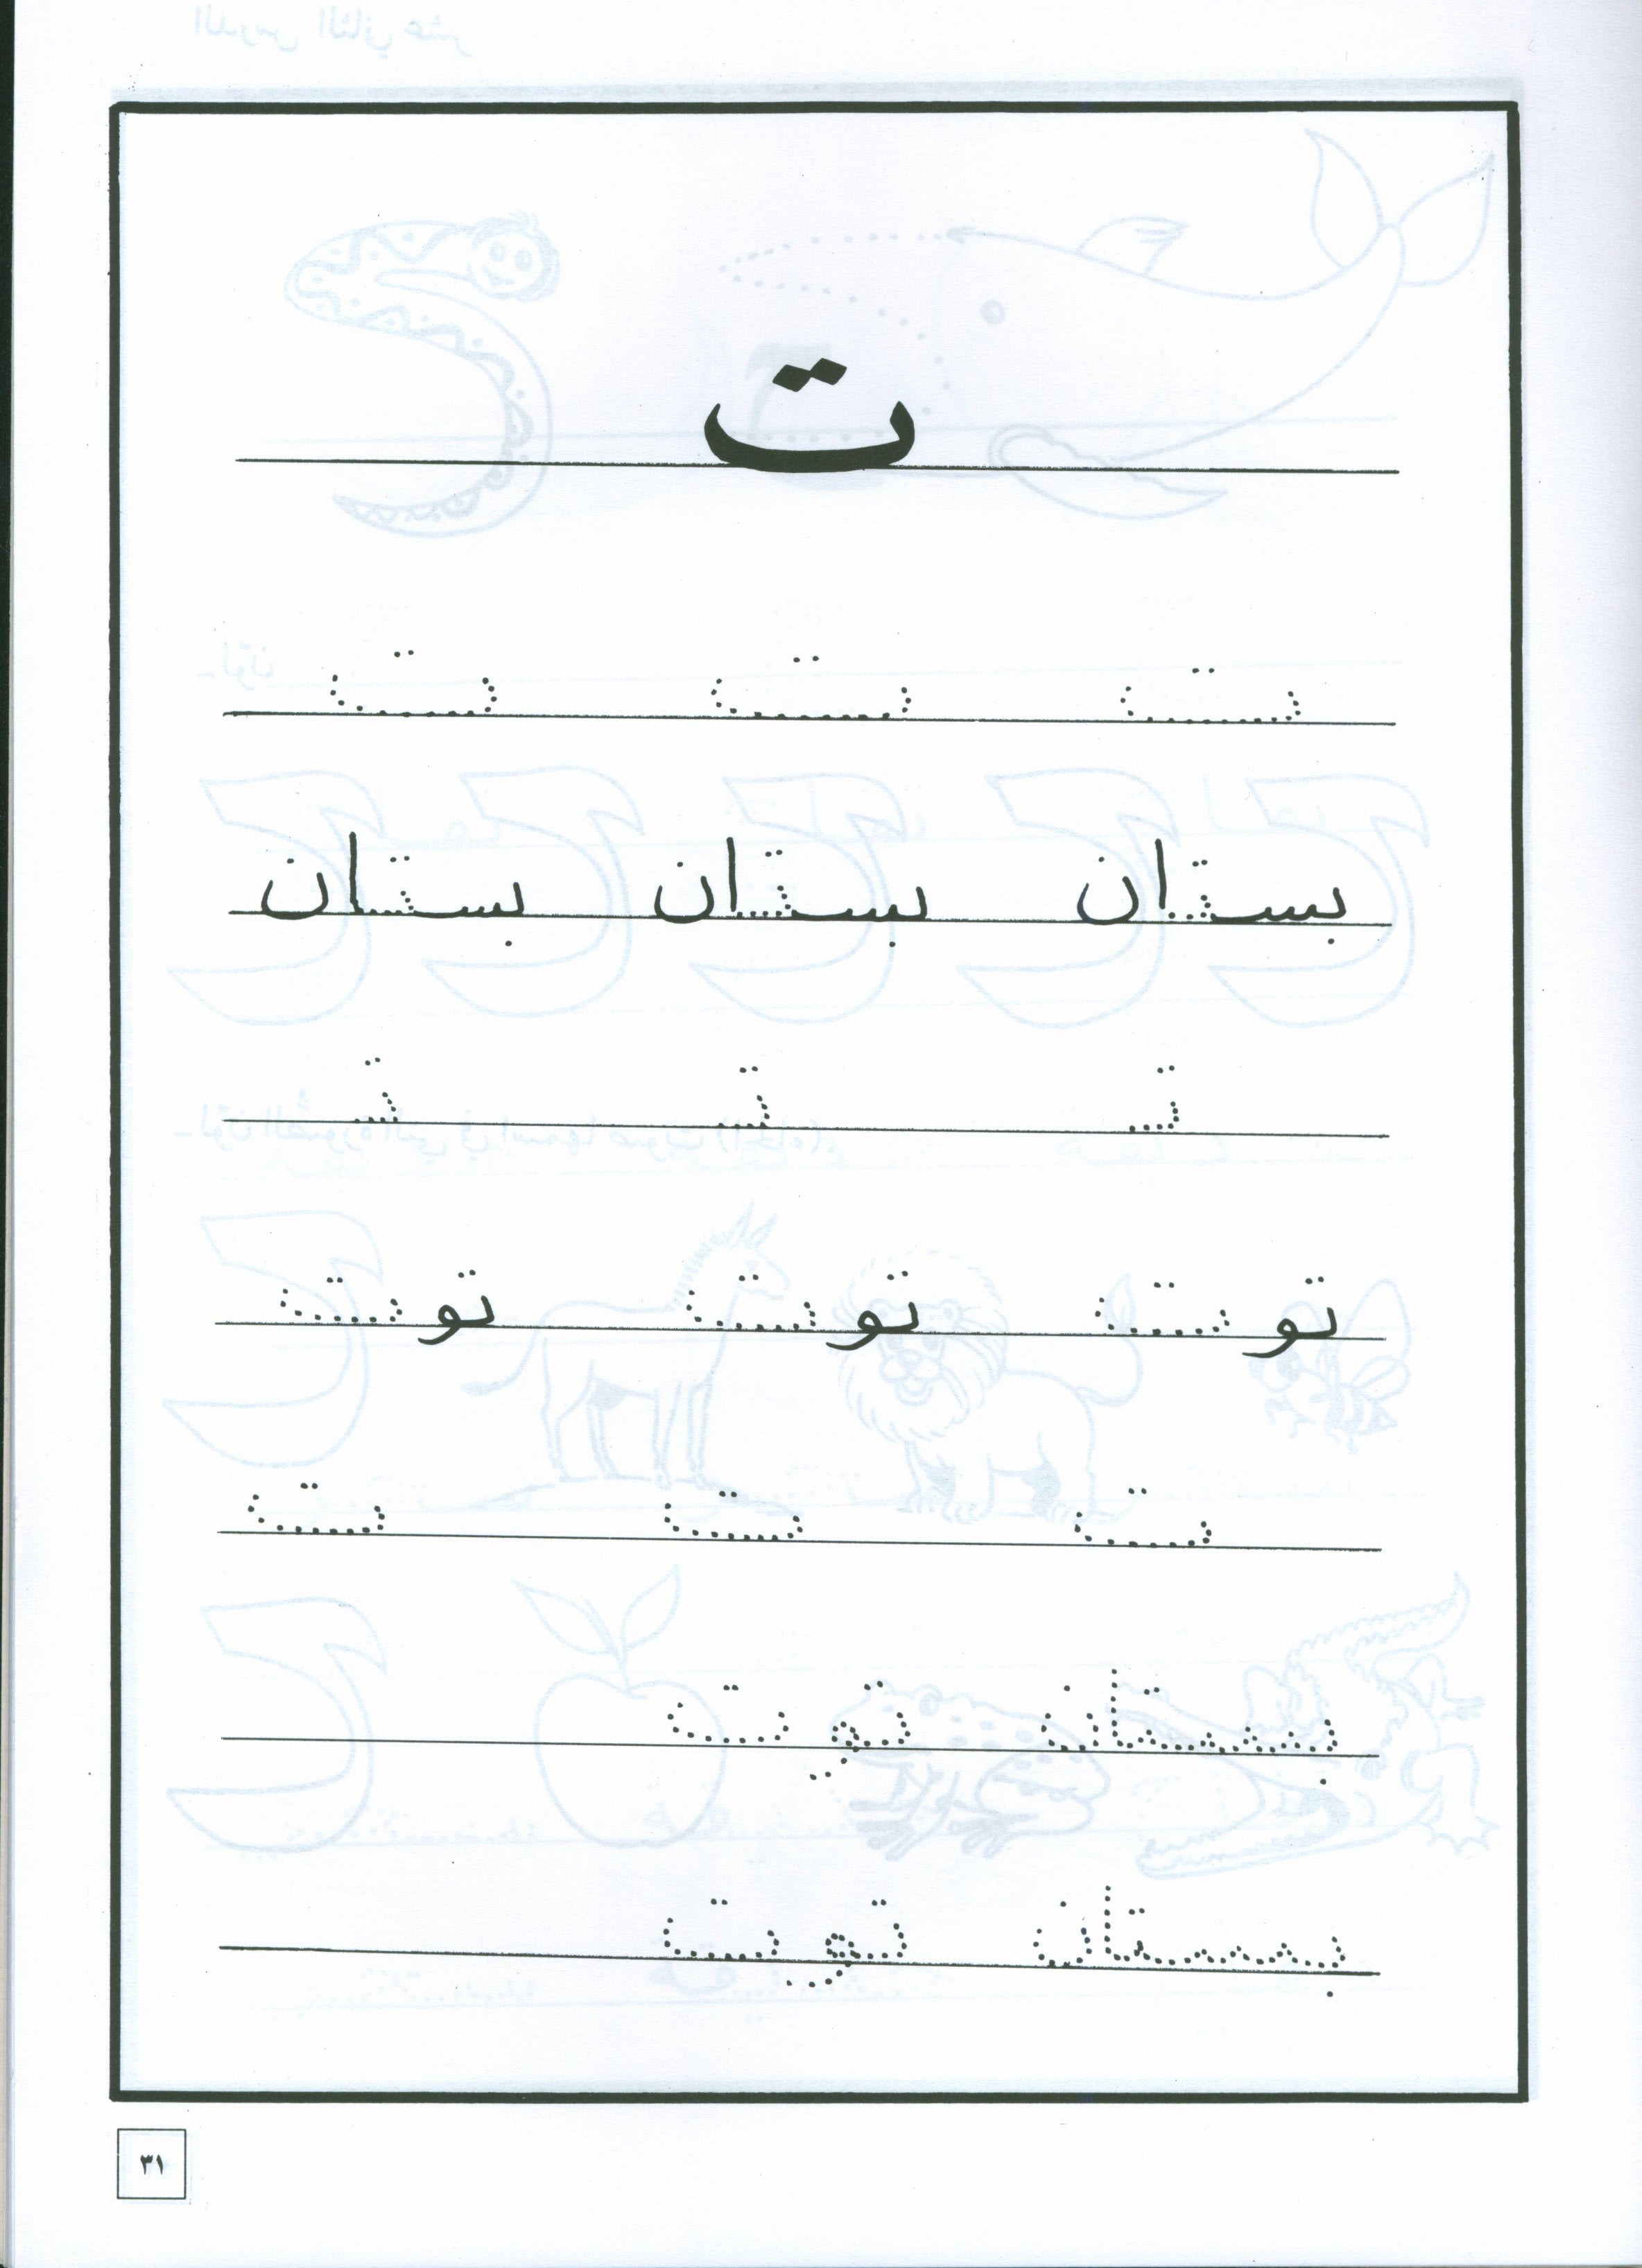 ت
ت ت ت
بستان بستان بستان
تـ تـ تـ
توت توت توت
ت ت ت
بستان توت
بستان توت
٣١